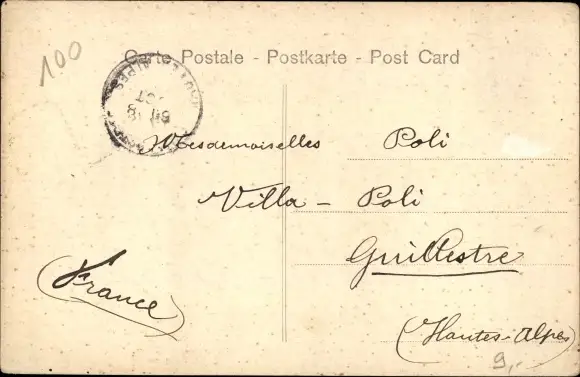 100
Carte Postale - Postkarte - Post Card
ALPES
Mesdemoiselles Poli
Villa - Poli
Guillestre
(France)
(Hautes-Alpes)
9,-